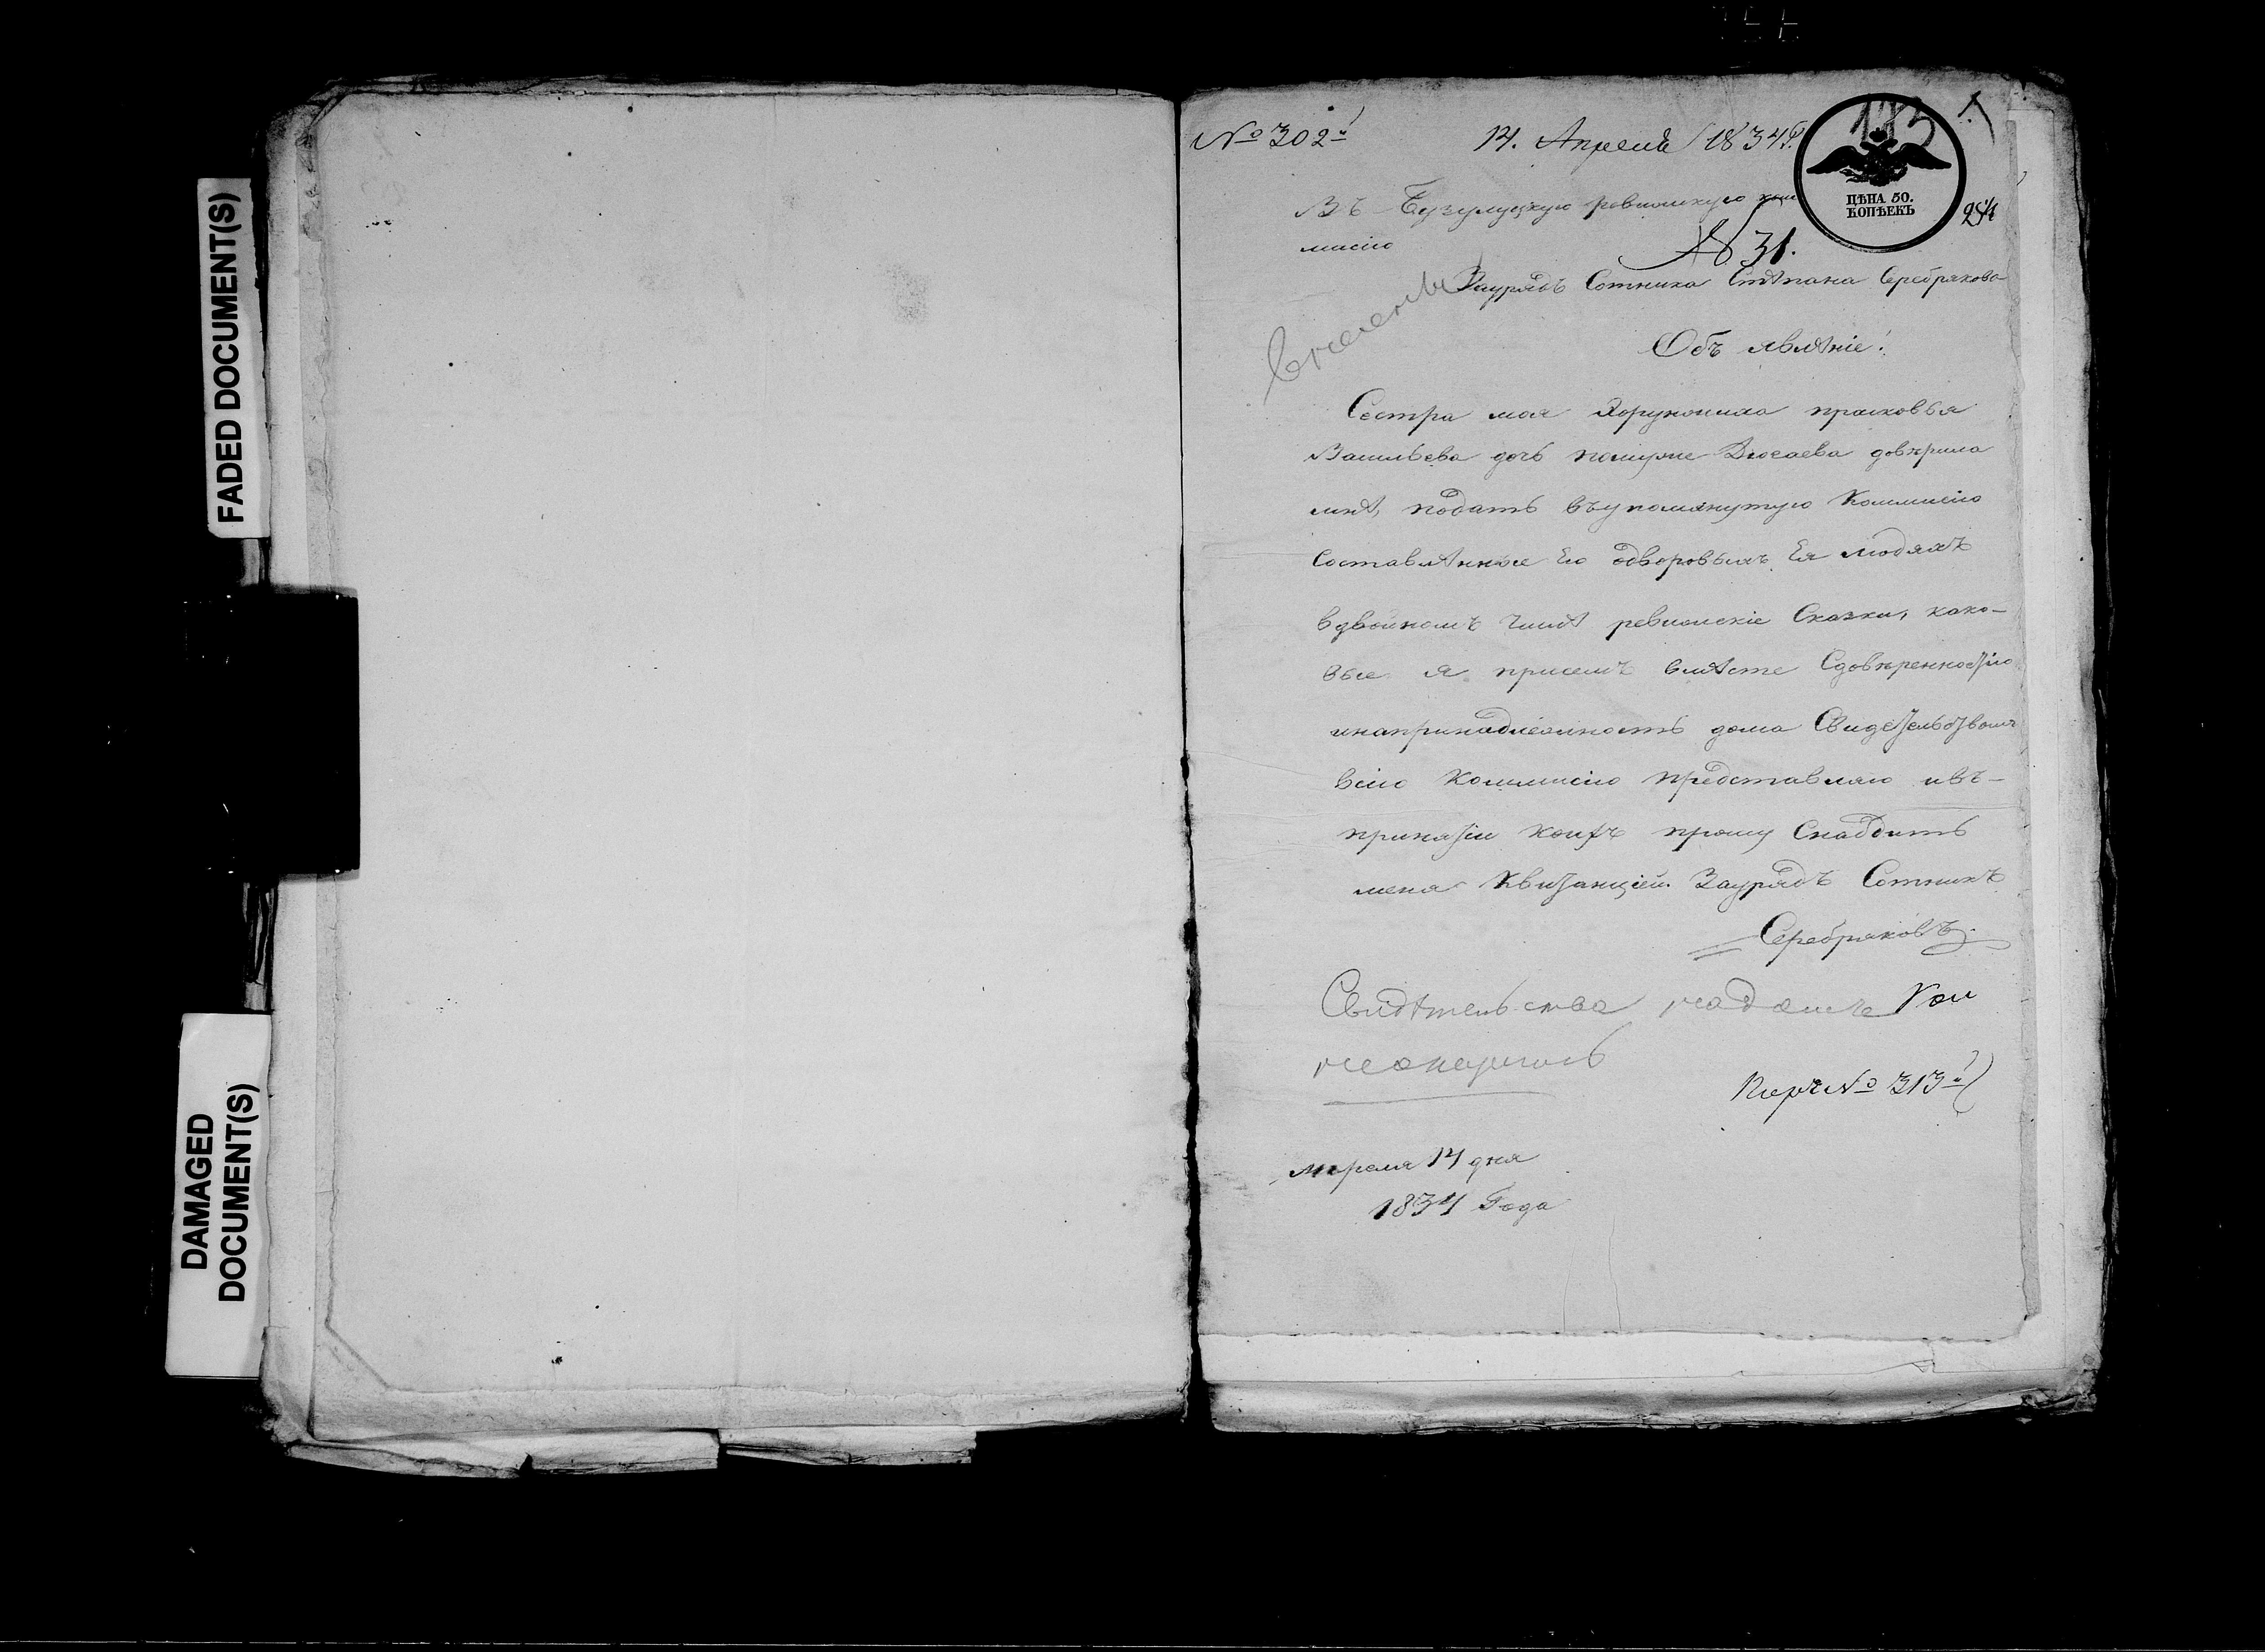 FADED DOCUMENT(S)
DAMAGED
DOCUMENT(S)
№ 302й
14. Апреля 1834
ЦѢНА 50.
КОПѢЕКЪ
Въ Бузулуцкую ревизскую ком
мисию
№ 31.
Зауряdъ Сотника Стѣпана Серебрякова
Объ явлѣніе!
Сестра моя Хорунжиха прасковья
Васильева дочь помуже Дюсаева довѣрила
мнѣ, подать въупомянутую Коммисію
составлѣнные Ею одворовыхъ Ея людяхъ
вдвойномъ числѣ ревизскіе Сказки, како-
вые я присемъ вмѣсте Сдовѣренностію
инапринадлежность дома Свидетельством
всію Коммисію представляю ивъ-
принятіи коихъ прошу Снабдить
меня Квитанціей. Заурядъ Сотникъ
Серебряковъ
Свидѣтельства на домъ
неокозалось
№ 313й
Апреля 14 дня
1834 Года